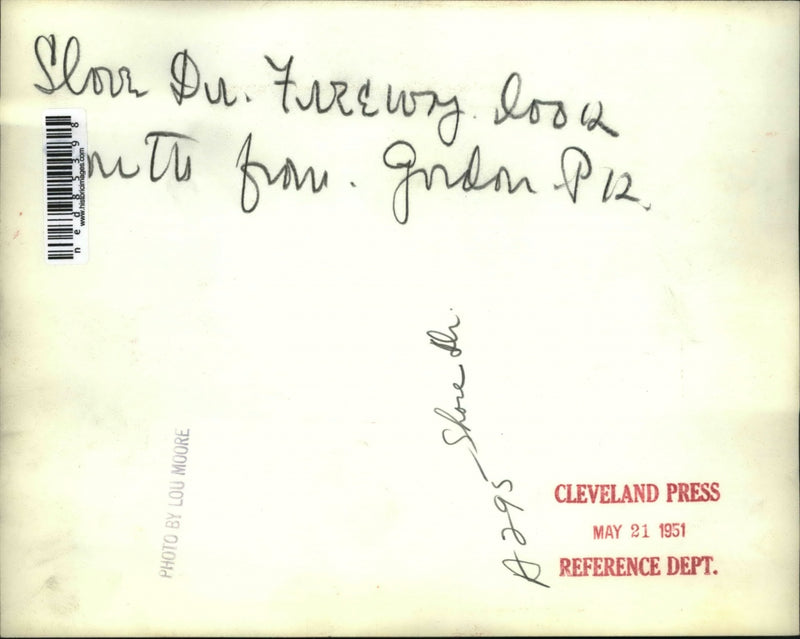 Shore Dr. Freeway look
from. Gordon Pk.
ned85398
www.historicimages.com
A295 - Shore Dr.
PHOTO BY LOU MOORE
CLEVELAND PRESS
MAY 21 1951
REFERENCE DEPT.